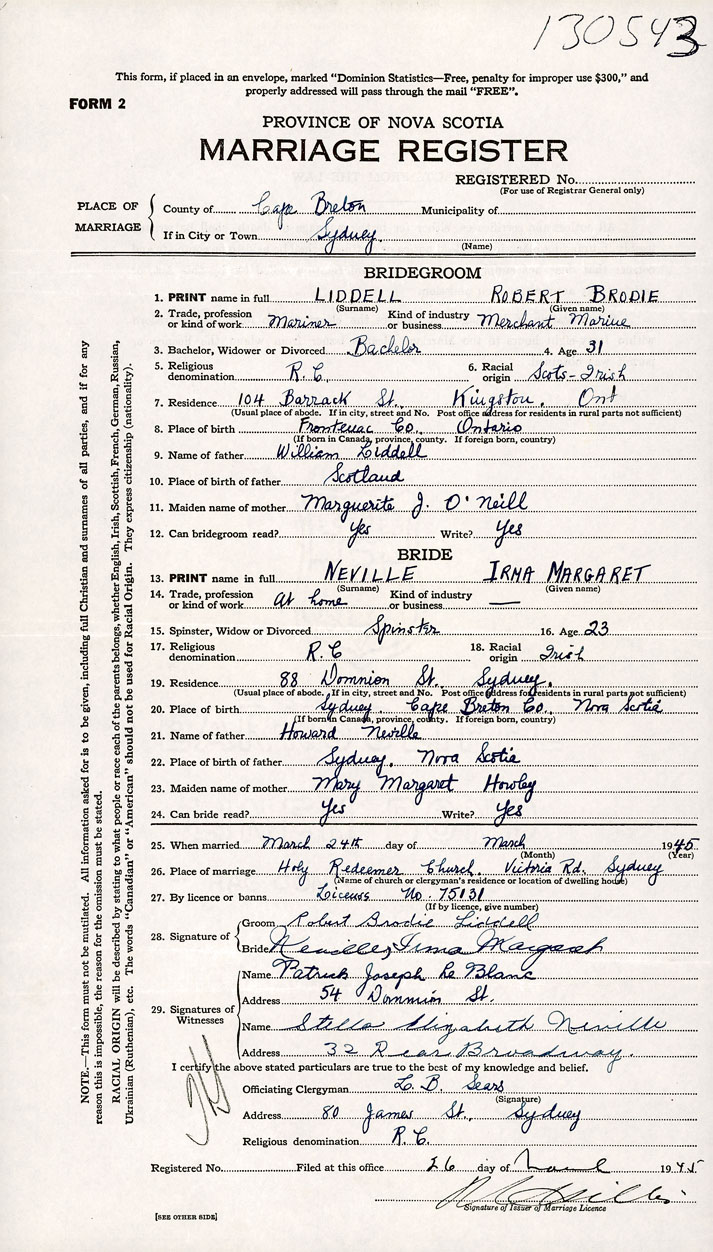 130543
This form, if placed in an envelope, marked "Dominion Statistics—Free, penalty for improper use $300," and
properly addressed will pass through the mail "FREE".
FORM 2
PROVINCE OF NOVA SCOTIA
MARRIAGE REGISTER
REGISTERED No.
(For use of Registrar General only)
PLACE OF MARRIAGE
County of Cape Breton Municipality of
If in City or Town Sydney
(Name)
BRIDEGROOM
1. PRINT name in full LIDDELL ROBERT BRODIE
(Surname) (Given name)
2. Trade, profession or kind of work Mariner Kind of industry or business Merchant Marine
3. Bachelor, Widower or Divorced Bachelor 4. Age 31
5. Religious denomination R.C. 6. Racial origin Scots-Irish
7. Residence 104 Barrack St. Kingston. Ont
(Usual place of abode. If in city, street and No. Post office address for residents in rural parts not sufficient)
8. Place of birth Frontenac Co. Ontario
(If born in Canada, province, county. If foreign born, country)
9. Name of father William Liddell
10. Place of birth of father Scotland
11. Maiden name of mother Marguerite J. O'Neill
12. Can bridegroom read? Yes Write? Yes
BRIDE
13. PRINT name in full NEVILLE IRMA MARGARET
(Surname) (Given name)
14. Trade, profession or kind of work At home Kind of industry or business —
15. Spinster, Widow or Divorced Spinster 16. Age 23
17. Religious denomination R.C 18. Racial origin Irish
19. Residence 88 Domnion St. Sydney.
(Usual place of abode. If in city, street and No. Post office address for residents in rural parts not sufficient)
20. Place of birth Sydney. Cape Breton Co. Nova Scotia
(If born in Canada, province, county. If foreign born, country)
21. Name of father Howard Neville
22. Place of birth of father Sydney. Nova Scotia
23. Maiden name of mother Mary Margaret Howley
24. Can bride read? Yes Write? Yes
25. When married March 24th day of March 1945
(Month) (Year)
26. Place of marriage Holy Redeemer Church. Victoria Rd. Sydney
(Name of church or clergyman's residence or location of dwelling house)
27. By licence or banns Licenss No. 75131
(If by licence, give number)
28. Signature of
Groom Robert Brodie Liddell
Bride Neville, Irma Margaret
29. Signatures of Witnesses
Name Patrick Joseph Le Blanc
Address 54 Domnion St.
Name Stella Elizabeth Neville
Address 32 Rear Broadway.
I certify the above stated particulars are true to the best of my knowledge and belief.
Officiating Clergyman L. B. Sears
(Signature)
Address 80 James St. Sydney
Religious denomination R.C.
Registered No. Filed at this office 26 day of March 1945
Signature of Issuer of Marriage Licence
[SEE OTHER SIDE]
NOTE.—This form must not be mutilated. All information asked for is to be given, including full Christian and surnames of all parties, and if for any
reason this is impossible, the reason for the omission must be stated.
RACIAL ORIGIN will be described by stating to what people or race each of the parents belongs, whether English, Irish, Scottish, French, German, Russian,
Ukrainian (Ruthenian), etc. The words "Canadian" or "American" should not be used for Racial Origin. They express citizenship (nationality).